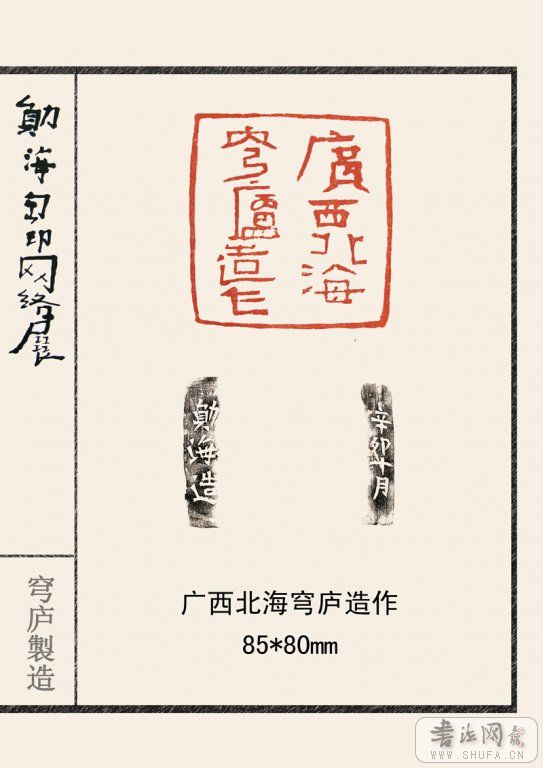 勛海匋印网络展
穹庐製造
廣西北海
穹廬造乍
勛海造
辛卯十月
广西北海穹庐造作
85*80mm
書法网
WWW.SHUFA.CN